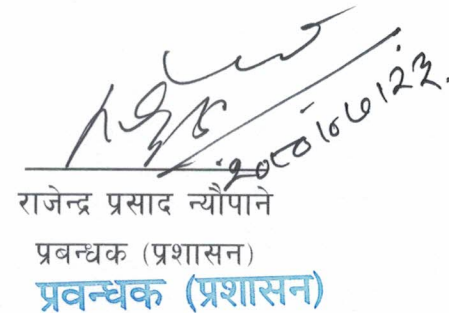 २०८०।०७।२३.
राजेन्द्र प्रसाद न्यौपाने
प्रबन्धक (प्रशासन)
प्रवन्धक (प्रशासन)